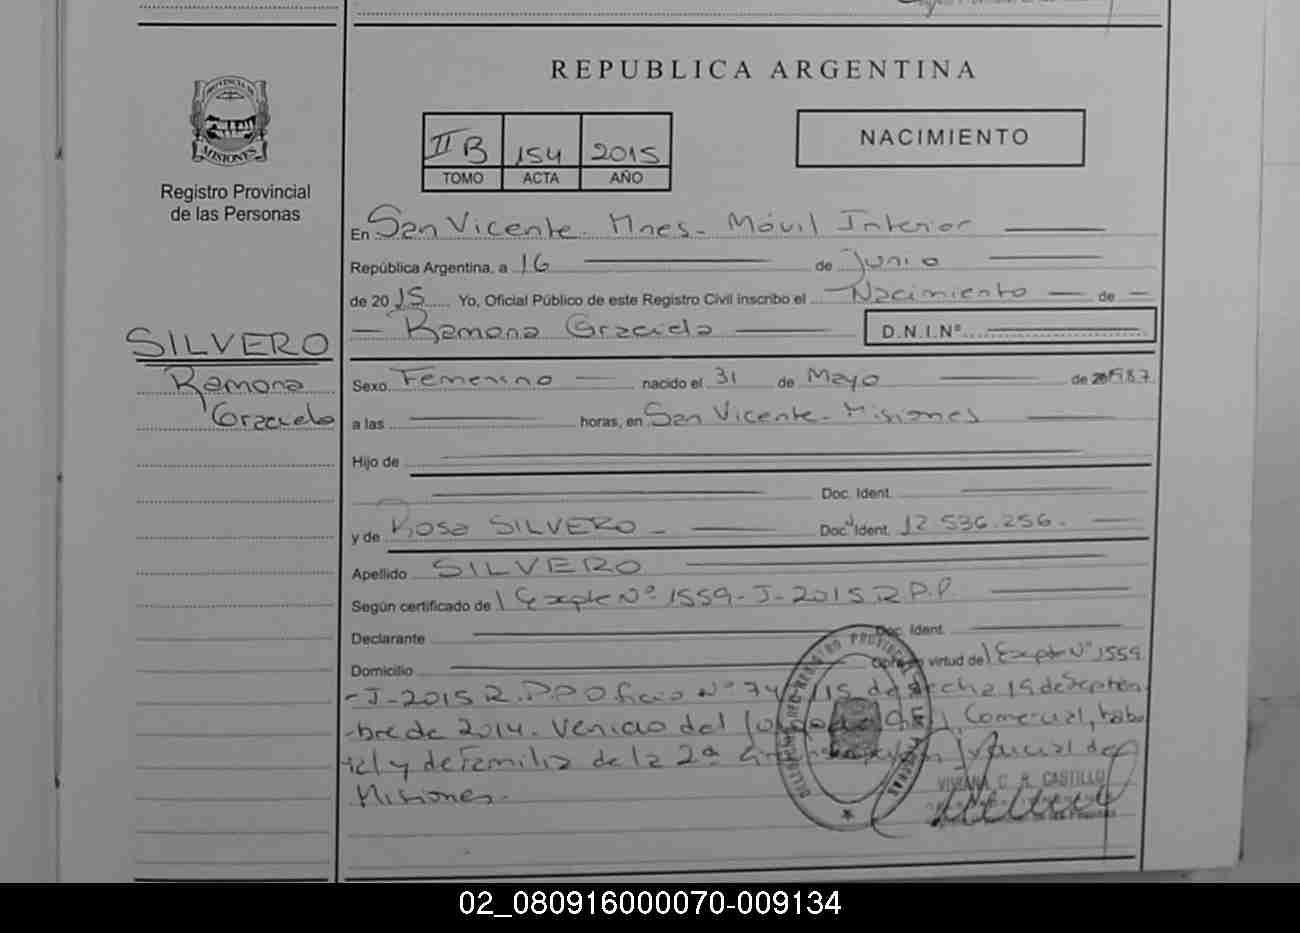 REPUBLICA ARGENTINA
PROVINCIA DE
MISIONES
Registro Provincial
de las Personas
II B 154 2015
TOMO ACTA AÑO
NACIMIENTO
En San Vicente. Mnes. Móvil Interior
República Argentina, a 16 de Junio
de 2015 Yo, Oficial Público de este Registro Civil inscribo el Nacimiento de
Ramona Graciela D.N.I.Nº
SILVERO
Ramona
Graciela
Sexo. Femenino nacido el 31 de Mayo de 1987
a las horas, en San Vicente. Misiones
Hijo de
Doc. Ident.
y de Rosa SILVERO Doc. Ident. 12.536.256.
Apellido SILVERO
Según certificado de Expte Nº 1559-J-2015 R.P.P.
Declarante Doc. Ident.
Domicilio virtud de Expte Nº 1559
-J-2015 R.P.P Oficio Nº 74 /15 de fecha 15 de Septiem
-bre de 2014. Venido del Juzgado Civil, Comercial, Labo
ral y de Familia de la 2ª Circunscripción Judicial de
Misiones.
REGISTRO PROVINCIAL DE LAS PERSONAS
VIVIANA C. R. CASTILLO
02_080916000070-009134